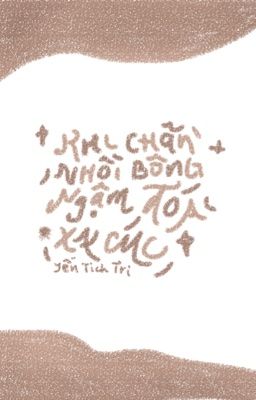 KHI CHĂN
NHỒI BÔNG
NGẬM ĐÓA
XU CÚC
Yến Tich Trị